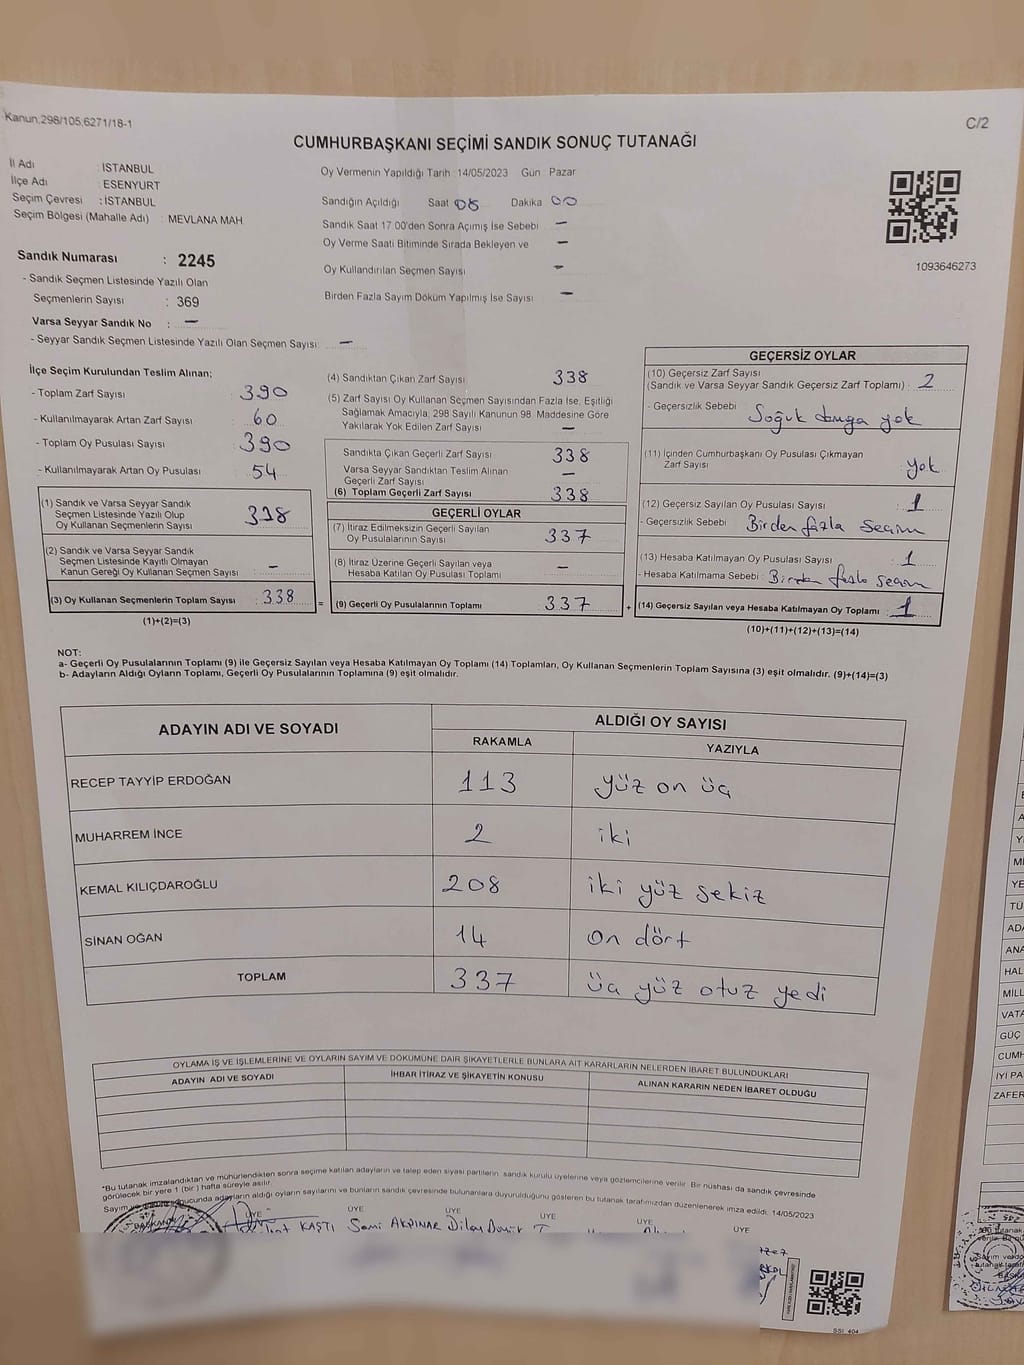 Kanun;298/105;6271/18-1
C/2
CUMHURBAŞKANI SEÇİMİ SANDIK SONUÇ TUTANAĞI
İl Adı : İSTANBUL
İlçe Adı : ESENYURT
Seçim Çevresi : İSTANBUL
Seçim Bölgesi (Mahalle Adı) : MEVLANA MAH
Oy Vermenin Yapıldığı Tarih 14/05/2023 Gün Pazar
Sandığın Açıldığı Saat 08 Dakika 00
Sandık Saat 17.00'den Sonra Açımış İse Sebebi —
Oy Verme Saati Bitiminde Sırada Bekleyen ve —
Oy Kullandırılan Seçmen Sayısı —
Birden Fazla Sayım Döküm Yapılmış İse Sayısı —
1093646273
Sandık Numarası : 2245
- Sandık Seçmen Listesinde Yazılı Olan
Seçmenlerin Sayısı : 369
Varsa Seyyar Sandık No : —
- Seyyar Sandık Seçmen Listesinde Yazılı Olan Seçmen Sayısı: —
İlçe Seçim Kurulundan Teslim Alınan;
- Toplam Zarf Sayısı : 390
- Kullanılmayarak Artan Zarf Sayısı : 60
- Toplam Oy Pusulası Sayısı : 390
- Kullanılmayarak Artan Oy Pusulası : 54
(1) Sandık ve Varsa Seyyar Sandık
Seçmen Listesinde Yazılı Olup
Oy Kullanan Seçmenlerin Sayısı : 338
(2) Sandık ve Varsa Seyyar Sandık
Seçmen Listesinde Kayıtlı Olmayan
Kanun Gereği Oy Kullanan Seçmen Sayısı : —
(3) Oy Kullanan Seçmenlerin Toplam Sayısı : 338
(1)+(2)=(3)
(4) Sandıktan Çıkan Zarf Sayısı 338
(5) Zarf Sayısı Oy Kullanan Seçmen Sayısından Fazla İse, Eşitliği
Sağlamak Amacıyla; 298 Sayılı Kanunun 98. Maddesine Göre
Yakılarak Yok Edilen Zarf Sayısı —
Sandıkta Çıkan Geçerli Zarf Sayısı 338
Varsa Seyyar Sandıktan Teslim Alınan
Geçerli Zarf Sayısı —
(6) Toplam Geçerli Zarf Sayısı 338
GEÇERLİ OYLAR
(7) İtiraz Edilmeksizin Geçerli Sayılan
Oy Pusulalarının Sayısı 337
(8) İtiraz Üzerine Geçerli Sayılan veya
Hesaba Katılan Oy Pusulası Toplamı —
= (9) Geçerli Oy Pusulalarının Toplamı 337
GEÇERSİZ OYLAR
(10) Geçersiz Zarf Sayısı
(Sandık ve Varsa Seyyar Sandık Geçersiz Zarf Toplamı) : 2
- Geçersizlik Sebebi Soğuk damga yok
(11) İçinden Cumhurbaşkanı Oy Pusulası Çıkmayan
Zarf Sayısı yok
(12) Geçersiz Sayılan Oy Pusulası Sayısı : 1
- Geçersizlik Sebebi Birden fazla seçim
(13) Hesaba Katılmayan Oy Pusulası Sayısı : 1
- Hesaba Katılmama Sebebi : Birden fazla seçim
+ (14) Geçersiz Sayılan veya Hesaba Katılmayan Oy Toplamı : 1
(10)+(11)+(12)+(13)=(14)
NOT:
a- Geçerli Oy Pusulalarının Toplamı (9) ile Geçersiz Sayılan veya Hesaba Katılmayan Oy Toplamı (14) Toplamları, Oy Kullanan Seçmenlerin Toplam Sayısına (3) eşit olmalıdır. (9)+(14)=(3)
b- Adayların Aldığı Oyların Toplamı, Geçerli Oy Pusulalarının Toplamına (9) eşit olmalıdır.
ADAYIN ADI VE SOYADI
ALDIĞI OY SAYISI
RAKAMLA YAZIYLA
RECEP TAYYİP ERDOĞAN 113 yüz on üç
MUHARREM İNCE 2 iki
KEMAL KILIÇDAROĞLU 208 iki yüz sekiz
SİNAN OĞAN 14 on dört
TOPLAM 337 üç yüz otuz yedi
OYLAMA İŞ VE İŞLEMLERİNE VE OYLARIN SAYIM VE DÖKÜMÜNE DAİR ŞİKAYETLERLE BUNLARA AİT KARARLARIN NELERDEN İBARET BULUNDUKLARI
ADAYIN ADI VE SOYADI İHBAR İTİRAZ VE ŞİKAYETİN KONUSU ALINAN KARARIN NEDEN İBARET OLDUĞU
*Bu tutanak imzalandıktan ve mühürlendikten sonra seçime katılan adayların ve talep eden siyasi partilerin sandık kurulu üyelerine veya gözlemcilerine verilir. Bir nüshası da sandık çevresinde
görülecek bir yere 1 (bir) hafta süreyle asılır.
adayların aldığı oyların sayılarını ve bunların sandık çevresinde bulunanlara duyurulduğunu gösteren bu tutanak tarafımızdan düzenlenerek imza edildi. 14/05/2023
BAŞKAN ÜYE ÜYE ÜYE ÜYE ÜYE ÜYE
KASTI Sami AKPINAR Dilay
SSİ 404
HAL
MİLL
VATA
GÜÇ
CUMH
İYİ PA
ZAFER